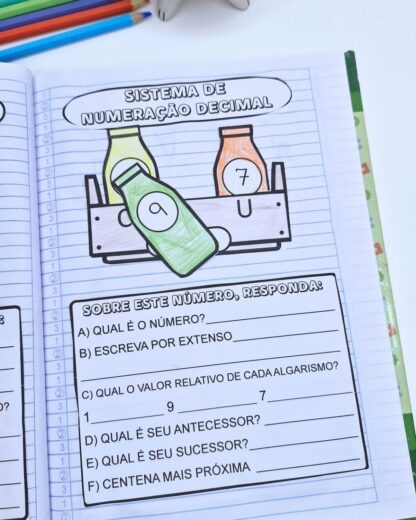 SISTEMA DE
NUMERAÇÃO DECIMAL
7
9
U
SOBRE ESTE NÚMERO, RESPONDA:
A) QUAL É O NÚMERO?
B) ESCREVA POR EXTENSO
C) QUAL O VALOR RELATIVO DE CADA ALGARISMO?
1 9 7
D) QUAL É SEU ANTECESSOR?
E) QUAL É SEU SUCESSOR?
F) CENTENA MAIS PRÓXIMA